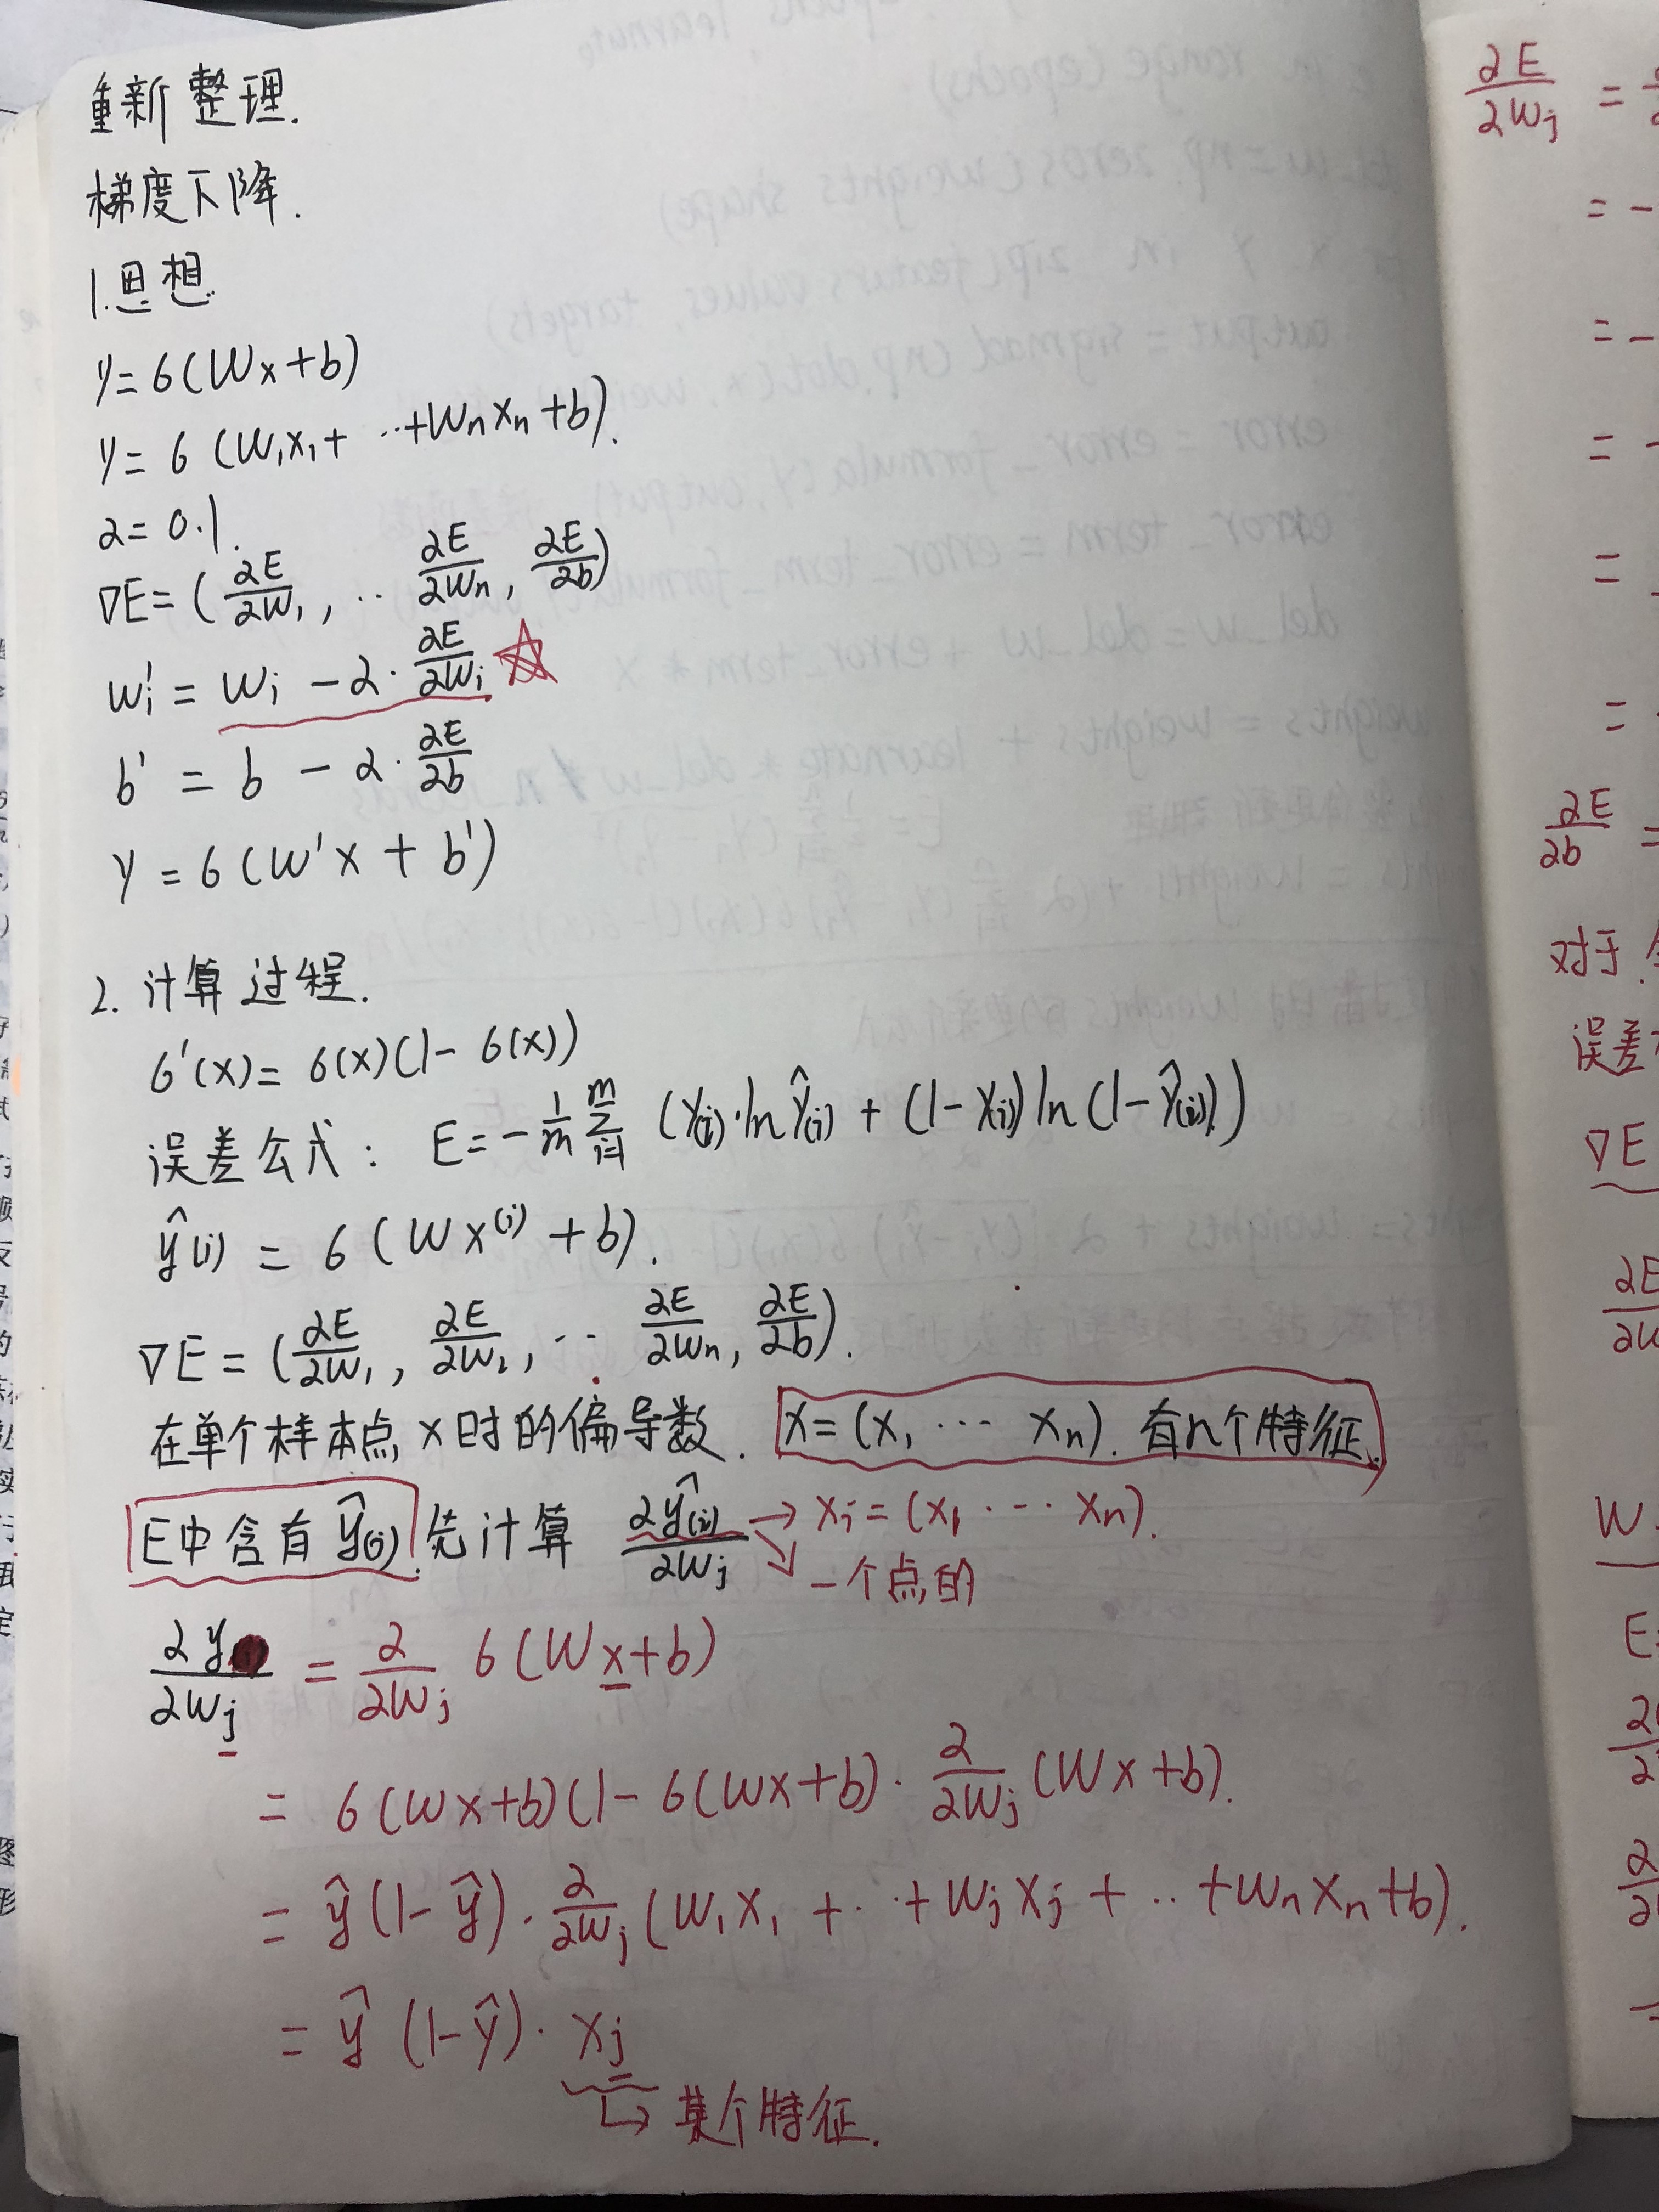 重新整理.
梯度下降.
1.思想.
y=σ(Wx+b)
y=σ(W₁x₁+‥+Wₙxₙ+b).
α=0.1.
∇E=(∂E/∂W₁,‥ ∂E/∂Wₙ, ∂E/∂b)
wᵢ' = wᵢ - α·∂E/∂Wᵢ ☆
b' = b - α·∂E/∂b
y = σ(W'x + b')
2. 计算过程.
σ'(x)= σ(x)(1-σ(x))
误差公式: E=-1/m Σᵢ₌₁ᵐ (y₍ᵢ₎·ln ŷ₍ᵢ₎ + (1-y₍ᵢ₎)ln(1-ŷ₍ᵢ₎))
ŷ(i) = σ(Wx⁽ⁱ⁾+b).
∇E=(∂E/∂W₁, ∂E/∂W₂,‥ ∂E/∂Wₙ, ∂E/∂b).
在单个样本点x时的偏导数. x=(x₁ ⋯ xₙ). 有n个特征.
E中含有ŷ(i) 先计算 ∂ŷ(i)/∂Wj → xᵢ=(x₁ ⋯ xₙ).
一个点的
∂y/∂Wj = ∂/∂Wj σ(Wx+b)
= σ(Wx+b)(1-σ(Wx+b)·∂/∂Wj (Wx+b).
= ŷ(1-ŷ)·∂/∂Wj (W₁x₁+‥+Wjxj+‥+Wₙxₙ+b).
= ŷ(1-ŷ)·xj
↳ 某个特征.
∂E/∂Wj =
= -
= -
= -
=
=
∂E/∂b =
对于
误差
∇E
∂E
W
E